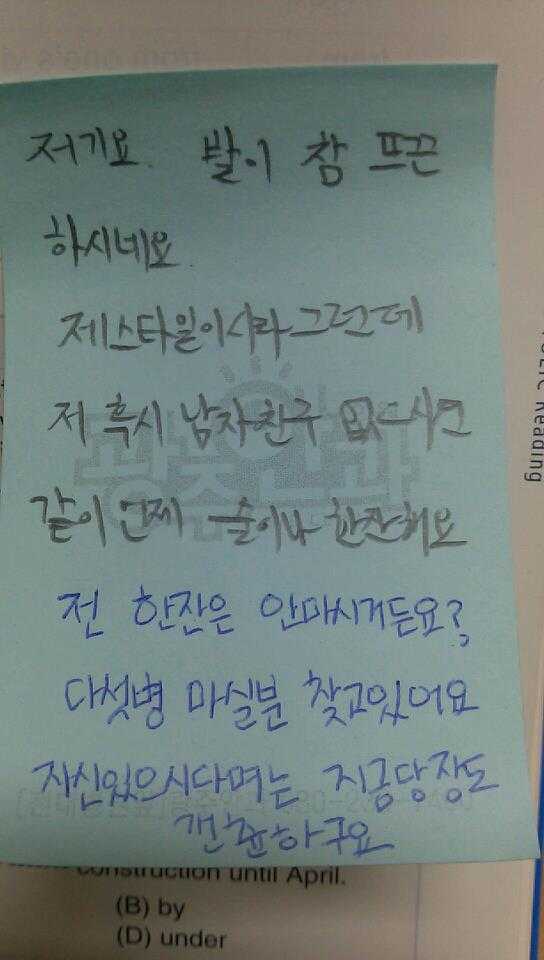 저기요. 발이 참 뜨끈
하시네요.
제스타일이시라 그런데
저 혹시 남자친구 없으시면
같이 언제 술이나 한잔해요
전 한잔은 안마시거든요?
다섯병 마실분 찾고있어요
자신있으시다며는 지금당장도
갠춘하구요
광중안과
TOEIC Reading
construction until April.
(B) by
(D) under